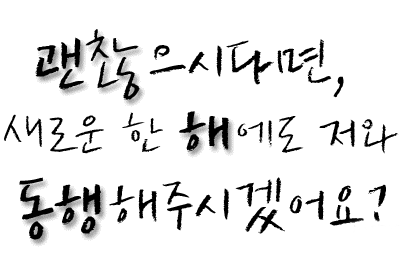 괜찮으시다면,
새로운 한 해에도 저와
동행해주시겠어요?